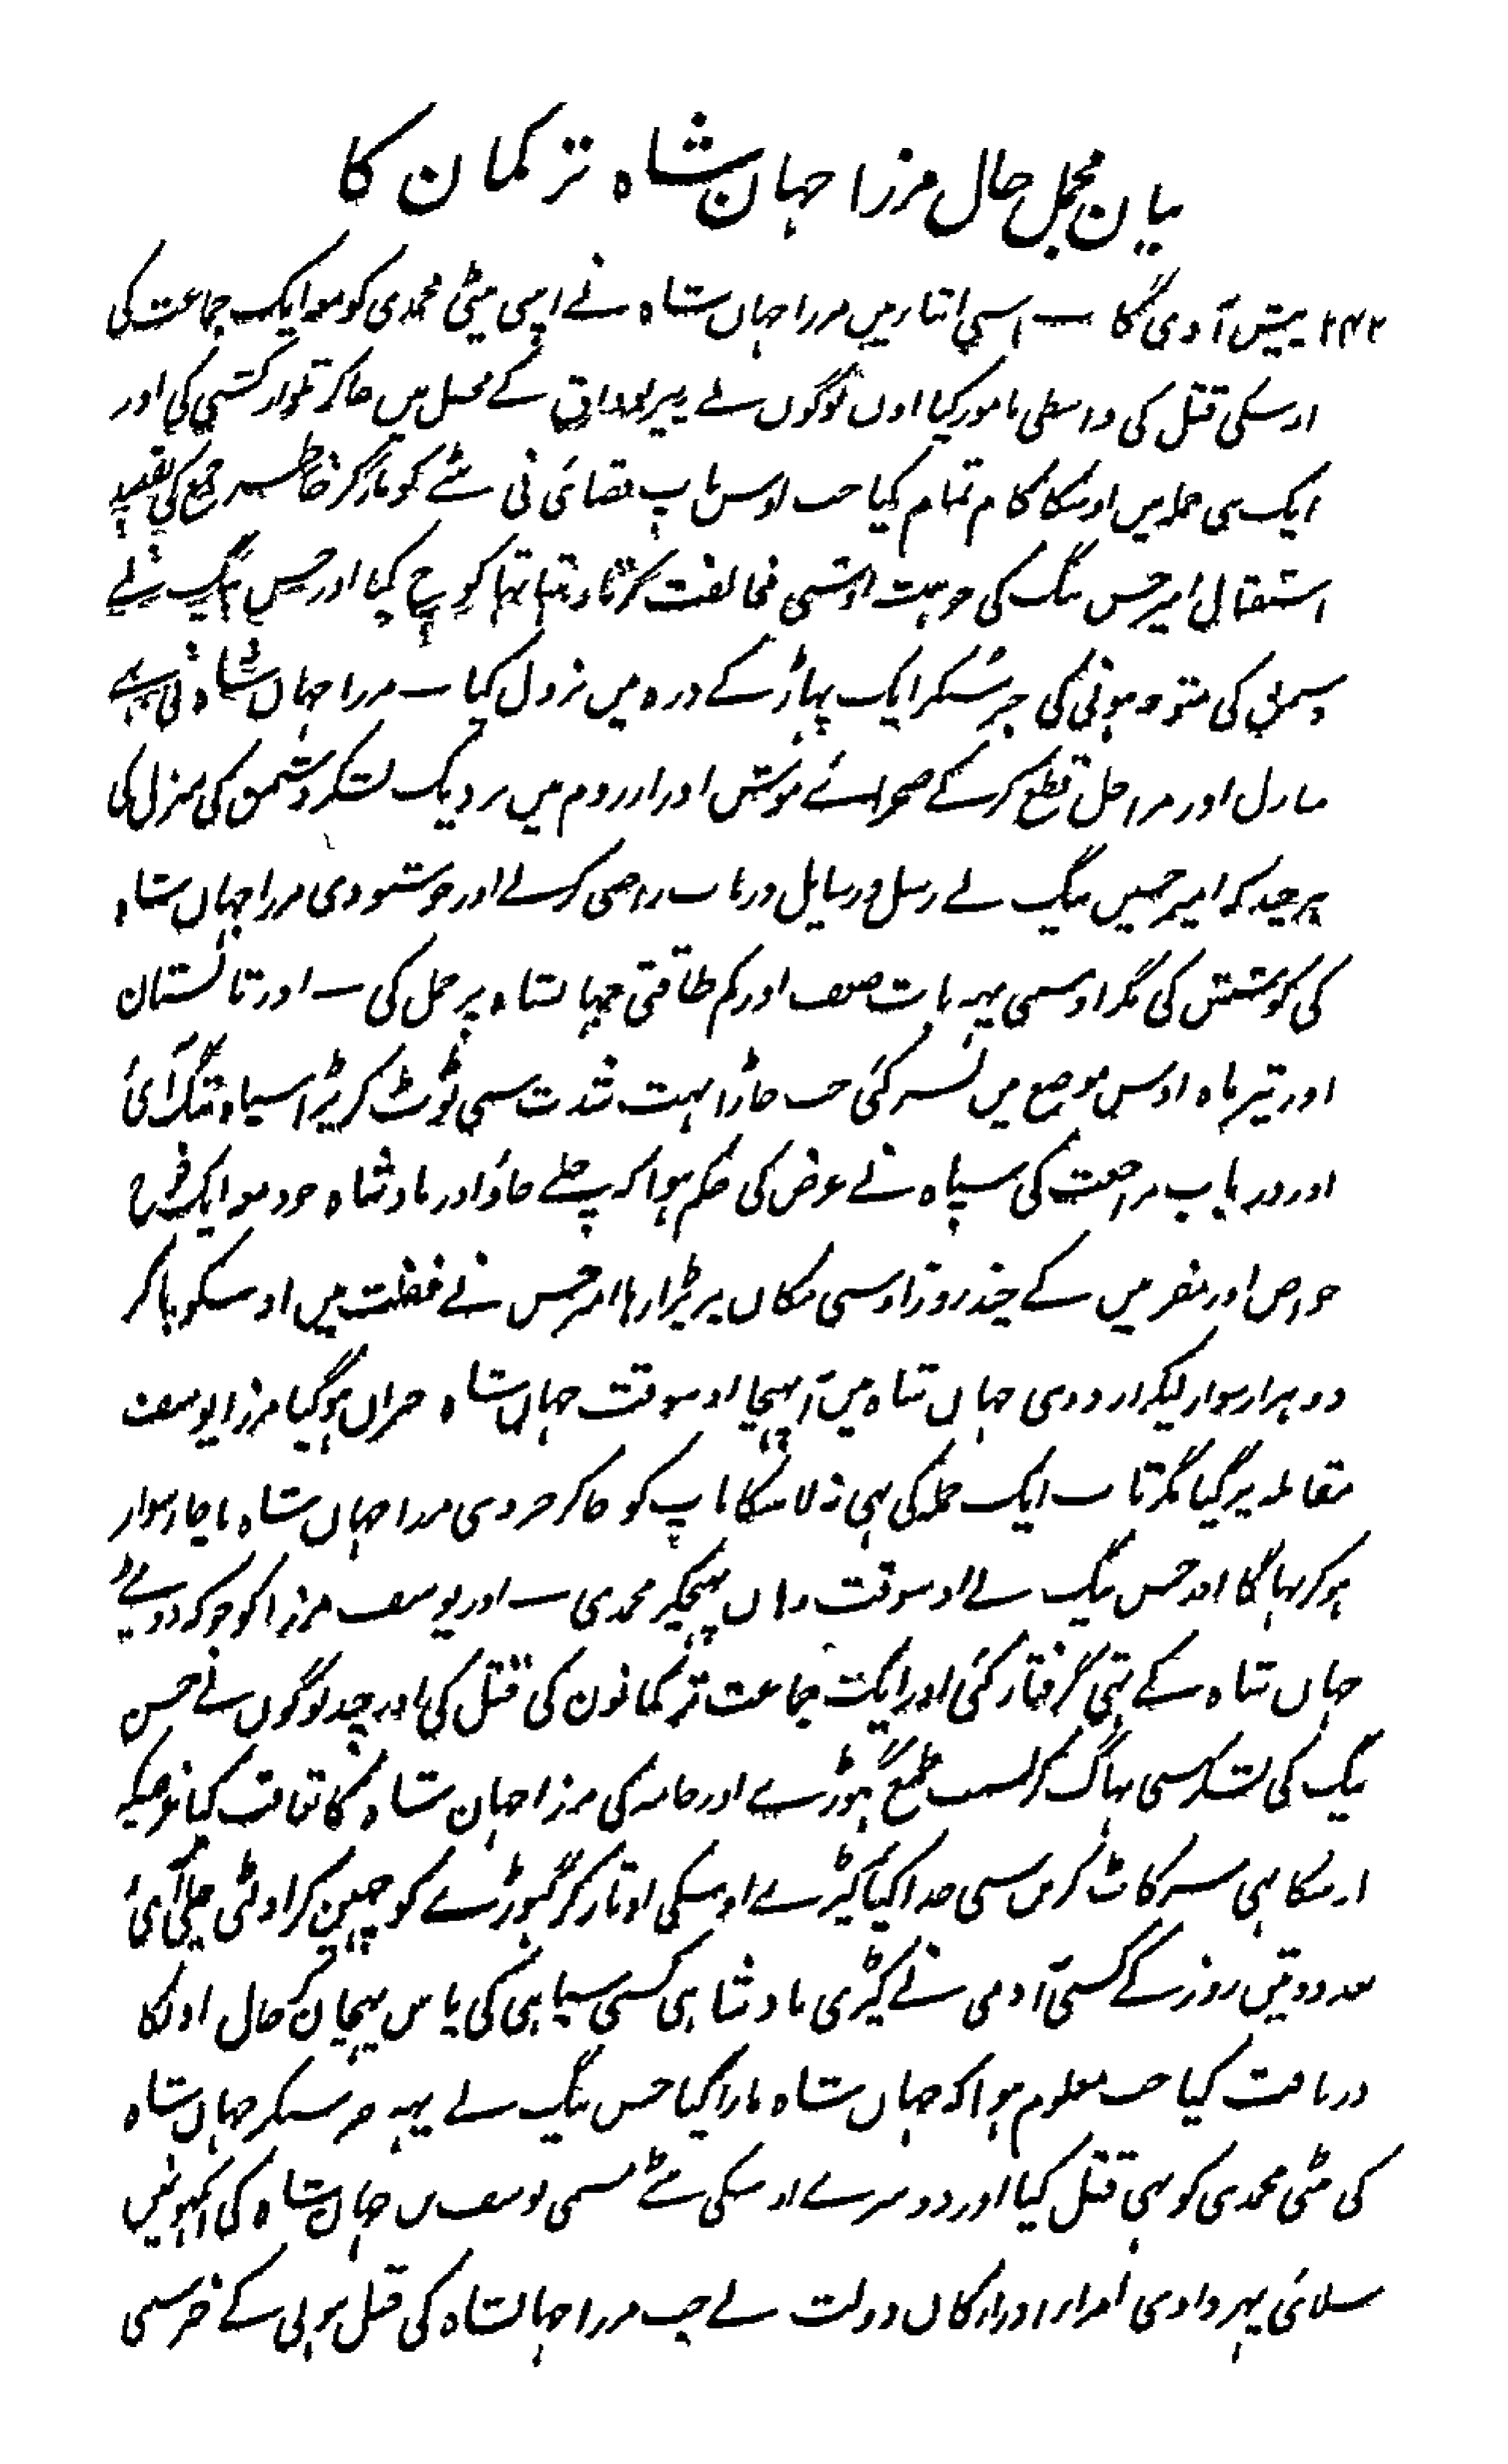 بیان مجمل حال مرزا جہان شاہ ترکمان کا
۲۴۲ پیش آدی گا ۔ اسی اثنا میں مرزا جہاں شاہ نے اپنی بیٹی محمدی کو معہ ایک جماعت کی
اوسکی قتل کی واسطی مامور کیا اون لوگوں نے پیر بوداق کے محل میں جاکر تلوار کشی کی اور
ایک ہی حملہ میں اوسکا کام تمام کیا جب اوس باپ قصائی نی بیٹے کو مار کر خاطر جمع کی بقصد
استقبال امیر حسن بیگ کی جو بہت اوسنی مخالفت کرتا رہتا تہا کوچ کیا اور حسن بیگ نے
دشمن کی متوجہ ہونی کی خبر سنکر ایک پہاڑ کے درہ میں نزول کیا ۔ مرزا جہاں شاہ نی بہی
منازل اور مراحل قطع کرکے صحرائے موش اور اروم میں نزدیک لشکر دشمن کی منزل کی
ہر چند کہ امیر حسین بیگ نے رسل و رسایل درباب راضی کرنے اور خوشنودی مرزا جہاں شاہ
کی کوشش کی مگر اوسی یہہ بات ضعف اور کم طاقتی جہانشاہ پر حمل کی ۔ اور تابستان
اور تیر ماہ اوس موضع میں بسر کئی جب جاڑا بہت شدت سی ٹوٹ کر پڑا سپاہ تنگ آئی
اور درباب مراجعت کی سپاہ نے عرض کی حکم ہوا کہ چلے جاؤ اور بادشاہ خود معہ ایک فوج
خواص اور مقربین کے چند روز اوسی مکان پر پڑا رہا امیر حسن نے غفلت میں اوسکو پاکر
دو ہزار سوار لیکر اردوی جہاں شاہ میں آپہنچا اوسوقت جہاں شاہ حیران ہوگیا مرزا یوسف
مقابلہ پر گیا مگر تاب ایک حملہ کی بہی نہ لا سکا باپ کو جاکر خبر دی مرزا جہاں شاہ ناچار سوار
ہوکر بہاگا اور حسن بیگ نے اوسوقت وہاں پہنچکر محمدی ۔ اور یوسف مرزا کو جو کہ دو بیٹے
جہاں شاہ کے تہی گرفتار کئی اور ایک جماعت ترکمانون کی قتل کی اور چند لوگوں نے حسن
بیگ کی لشکر سی بہاگ کر بسبب طمع گہوڑے اور جامہ کی مرزا جہان شاہ کا تعاقب کیا غرضیکہ
اوسکا بہی سر کاٹ کر تن سی جدا کیا کپڑے اوسکی اوتار کر گہوڑے کو چہین کر اولٹی چلی آئی
بعد دو تین روز کے کسی آدمی نے کپڑی بادشاہی کسی سپاہی کی پاس پہچان کر حال اونکا
دریافت کیا جب معلوم ہوا کہ جہاں شاہ مارا گیا حسن بیگ نے یہہ خبر سنکر جہاں شاہ
کی بیٹی محمدی کو بہی قتل کیا اور دوسرے اوسکی بیٹے مسمی یوسف بن جہاں شاہ کی آنکہونمیں
سلائی پہروادی امرا اور ارکان دولت نے جب مرزا جہانشاہ کی قتل ہونی کے خبر سنی